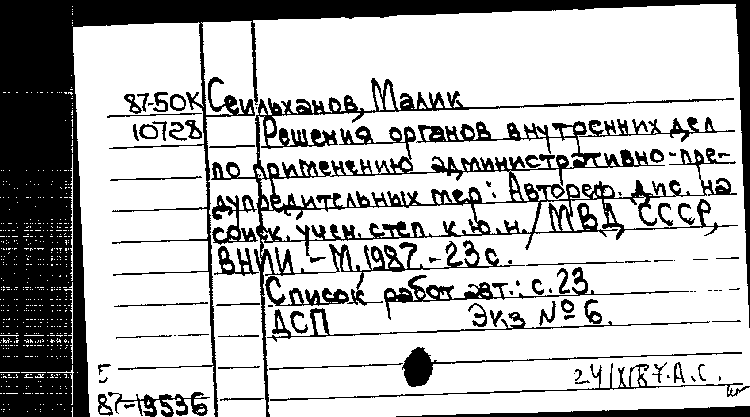 87-50К Сеильханов, Малик
10728 Решения органов внутренних дел
по применению административно-пре-
дупредительных мер: Автореф. дис. на
соиск. учен. степ. к.ю.н. / МВД СССР,
ВНИИ. - М., 1987. - 23 с.
Список работ авт.: с. 23.
ДСП Экз № 6.
Б
87-19536
24/XI 87. А.С.